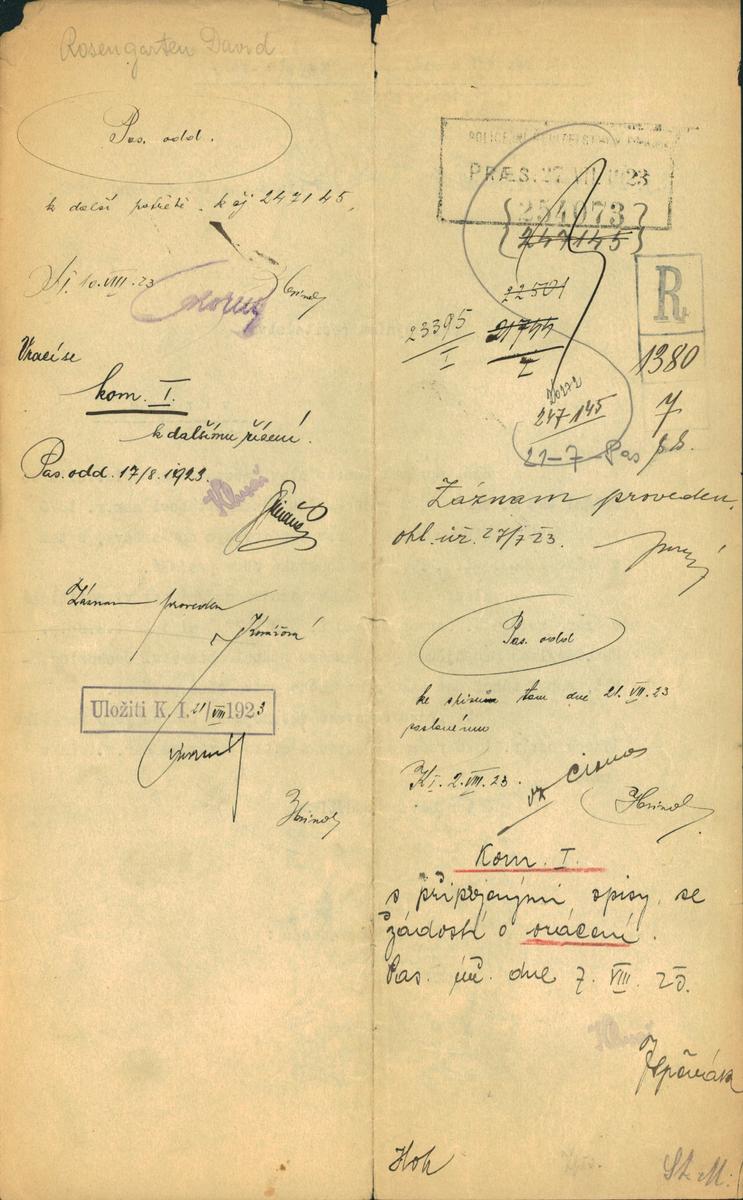 Rosengarten David
Pas. odd.
k další potřebě. k čj 247145,
10.VIII.23
Vrací se
kom. I.
k dalšímu řízení.
Pas. odd. 17/8. 1923.
Záznam proveden
Uložiti K. I. 21/VIII 1923
PRÆS. 27 VII 1923
254073
247145
22501
23395
I
21744
I
R
1380
7
247145
21-7 Pas
Záznam proveden.
ohl. úř. 27/7 23.
Pas. odd
ke spisům tam dne 21. VII. 23
poslanému
K I. 2. VIII. 23.
Kom. I.
s připojenými spisy, se
žádostí o vrácení.
Pas. úř. dne 7. VIII. 23.
Hok
St. M.